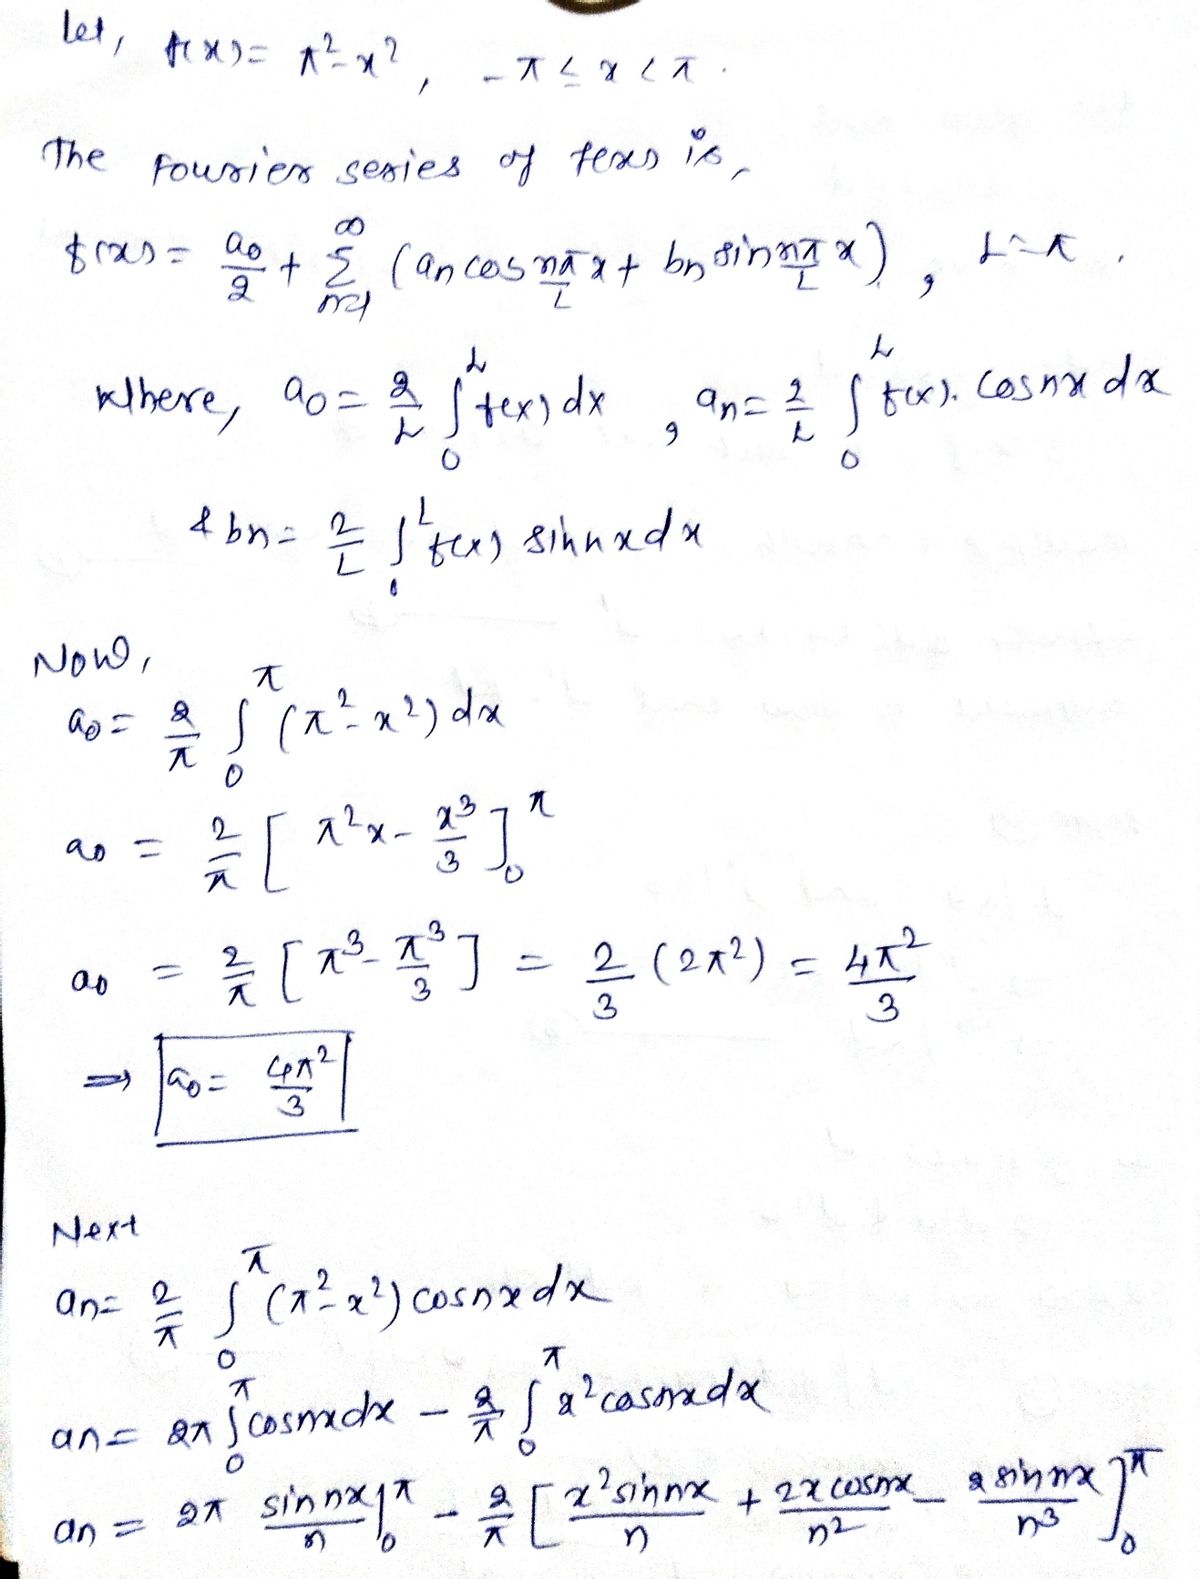 Let, f(x) = π² - x², -π ≤ x < π.
The Fourier series of f(x) is,
f(x) = a₀/2 + ∑_{n=1}^{∞} (aₙ cos nπ/L x + bₙ sin nπ/L x), L = π.
Where, a₀ = 2/L ∫₀^L f(x) dx, aₙ = 2/L ∫₀^L f(x). cosnx dx
& bₙ = 2/L ∫₀^L f(x) sinnx dx
Now,
a₀ = 2/π ∫₀^π (π² - x²) dx
a₀ = 2/π [π²x - x³/3]₀^π
a₀ = 2/π [π³ - π³/3] = 2/3 (2π²) = 4π²/3
⇒ a₀ = 4π²/3
Next
aₙ = 2/π ∫₀^π (π² - x²) cosnx dx
aₙ = 2π ∫₀^π cosnx dx - 2/π ∫₀^π x² cosnx dx
aₙ = 2π sinnx/n |₀^π - 2/π [x² sinnx/n + 2x cosnx/n² - 2 sinnx/n³]₀^π